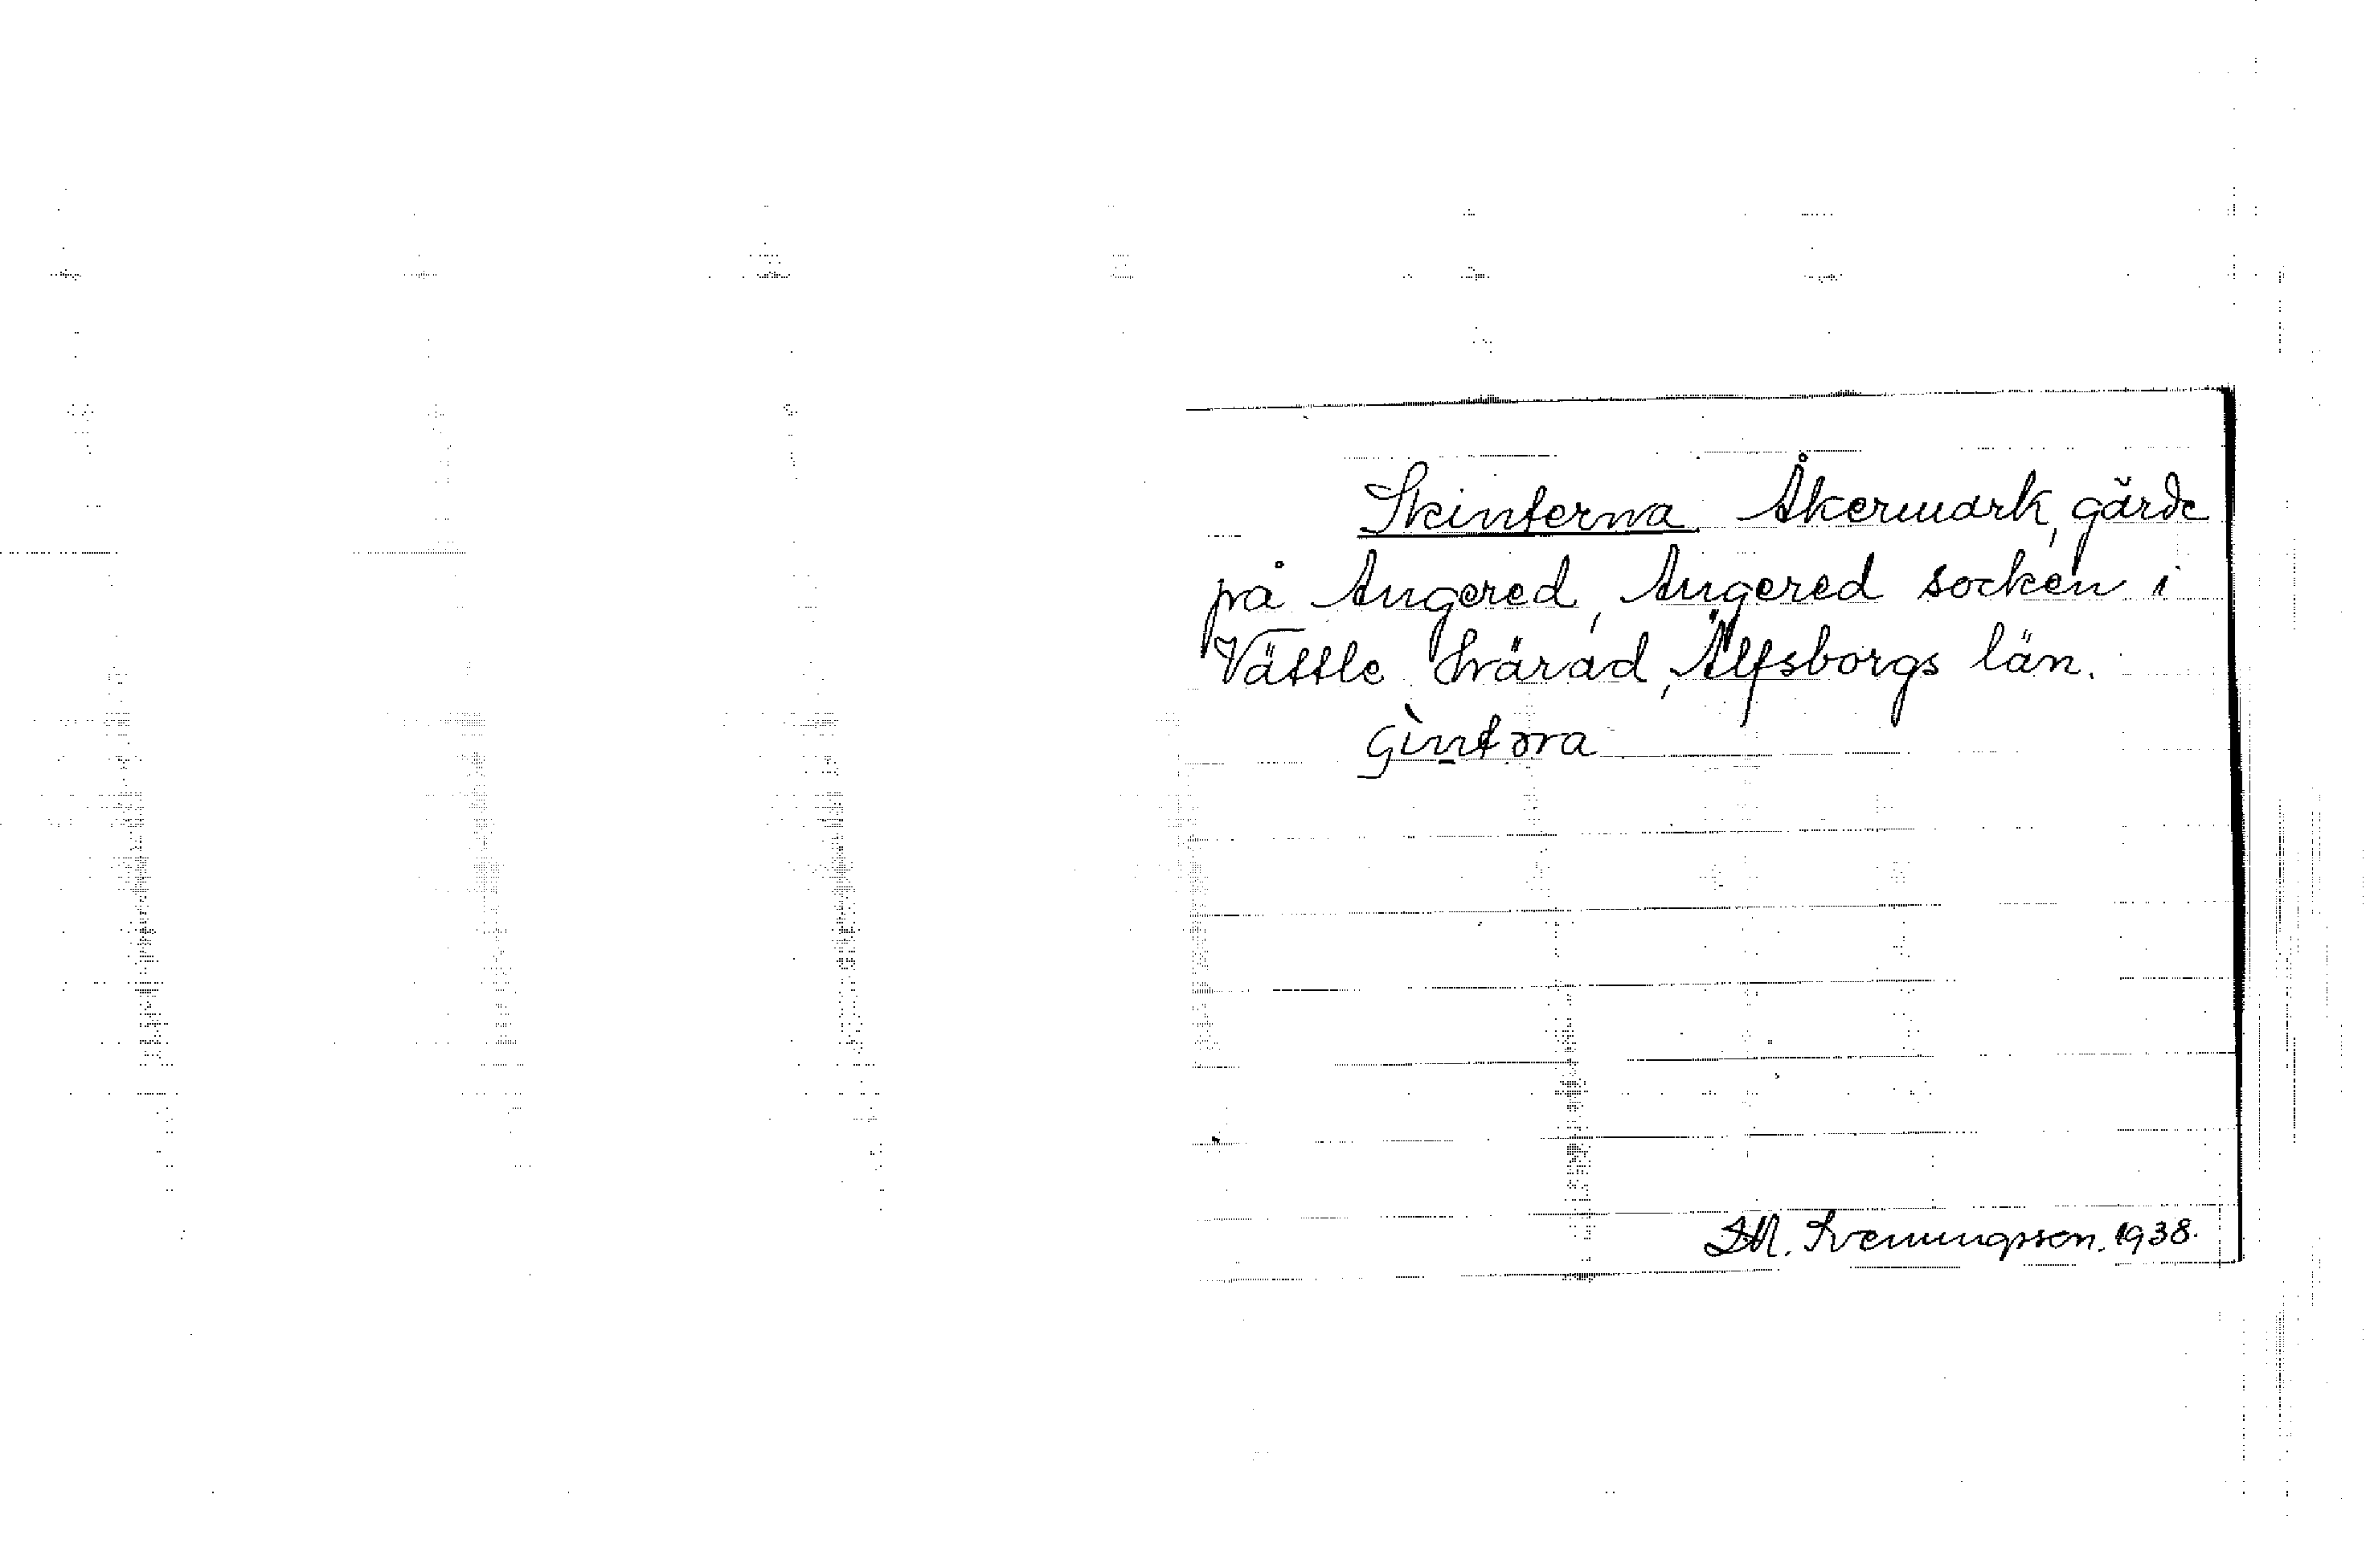 Skinterna. Åkermark, gärde
på Angered, Angered socken i
Vättle härad, Älfsborgs län.
M. Svenungsson. 1938.